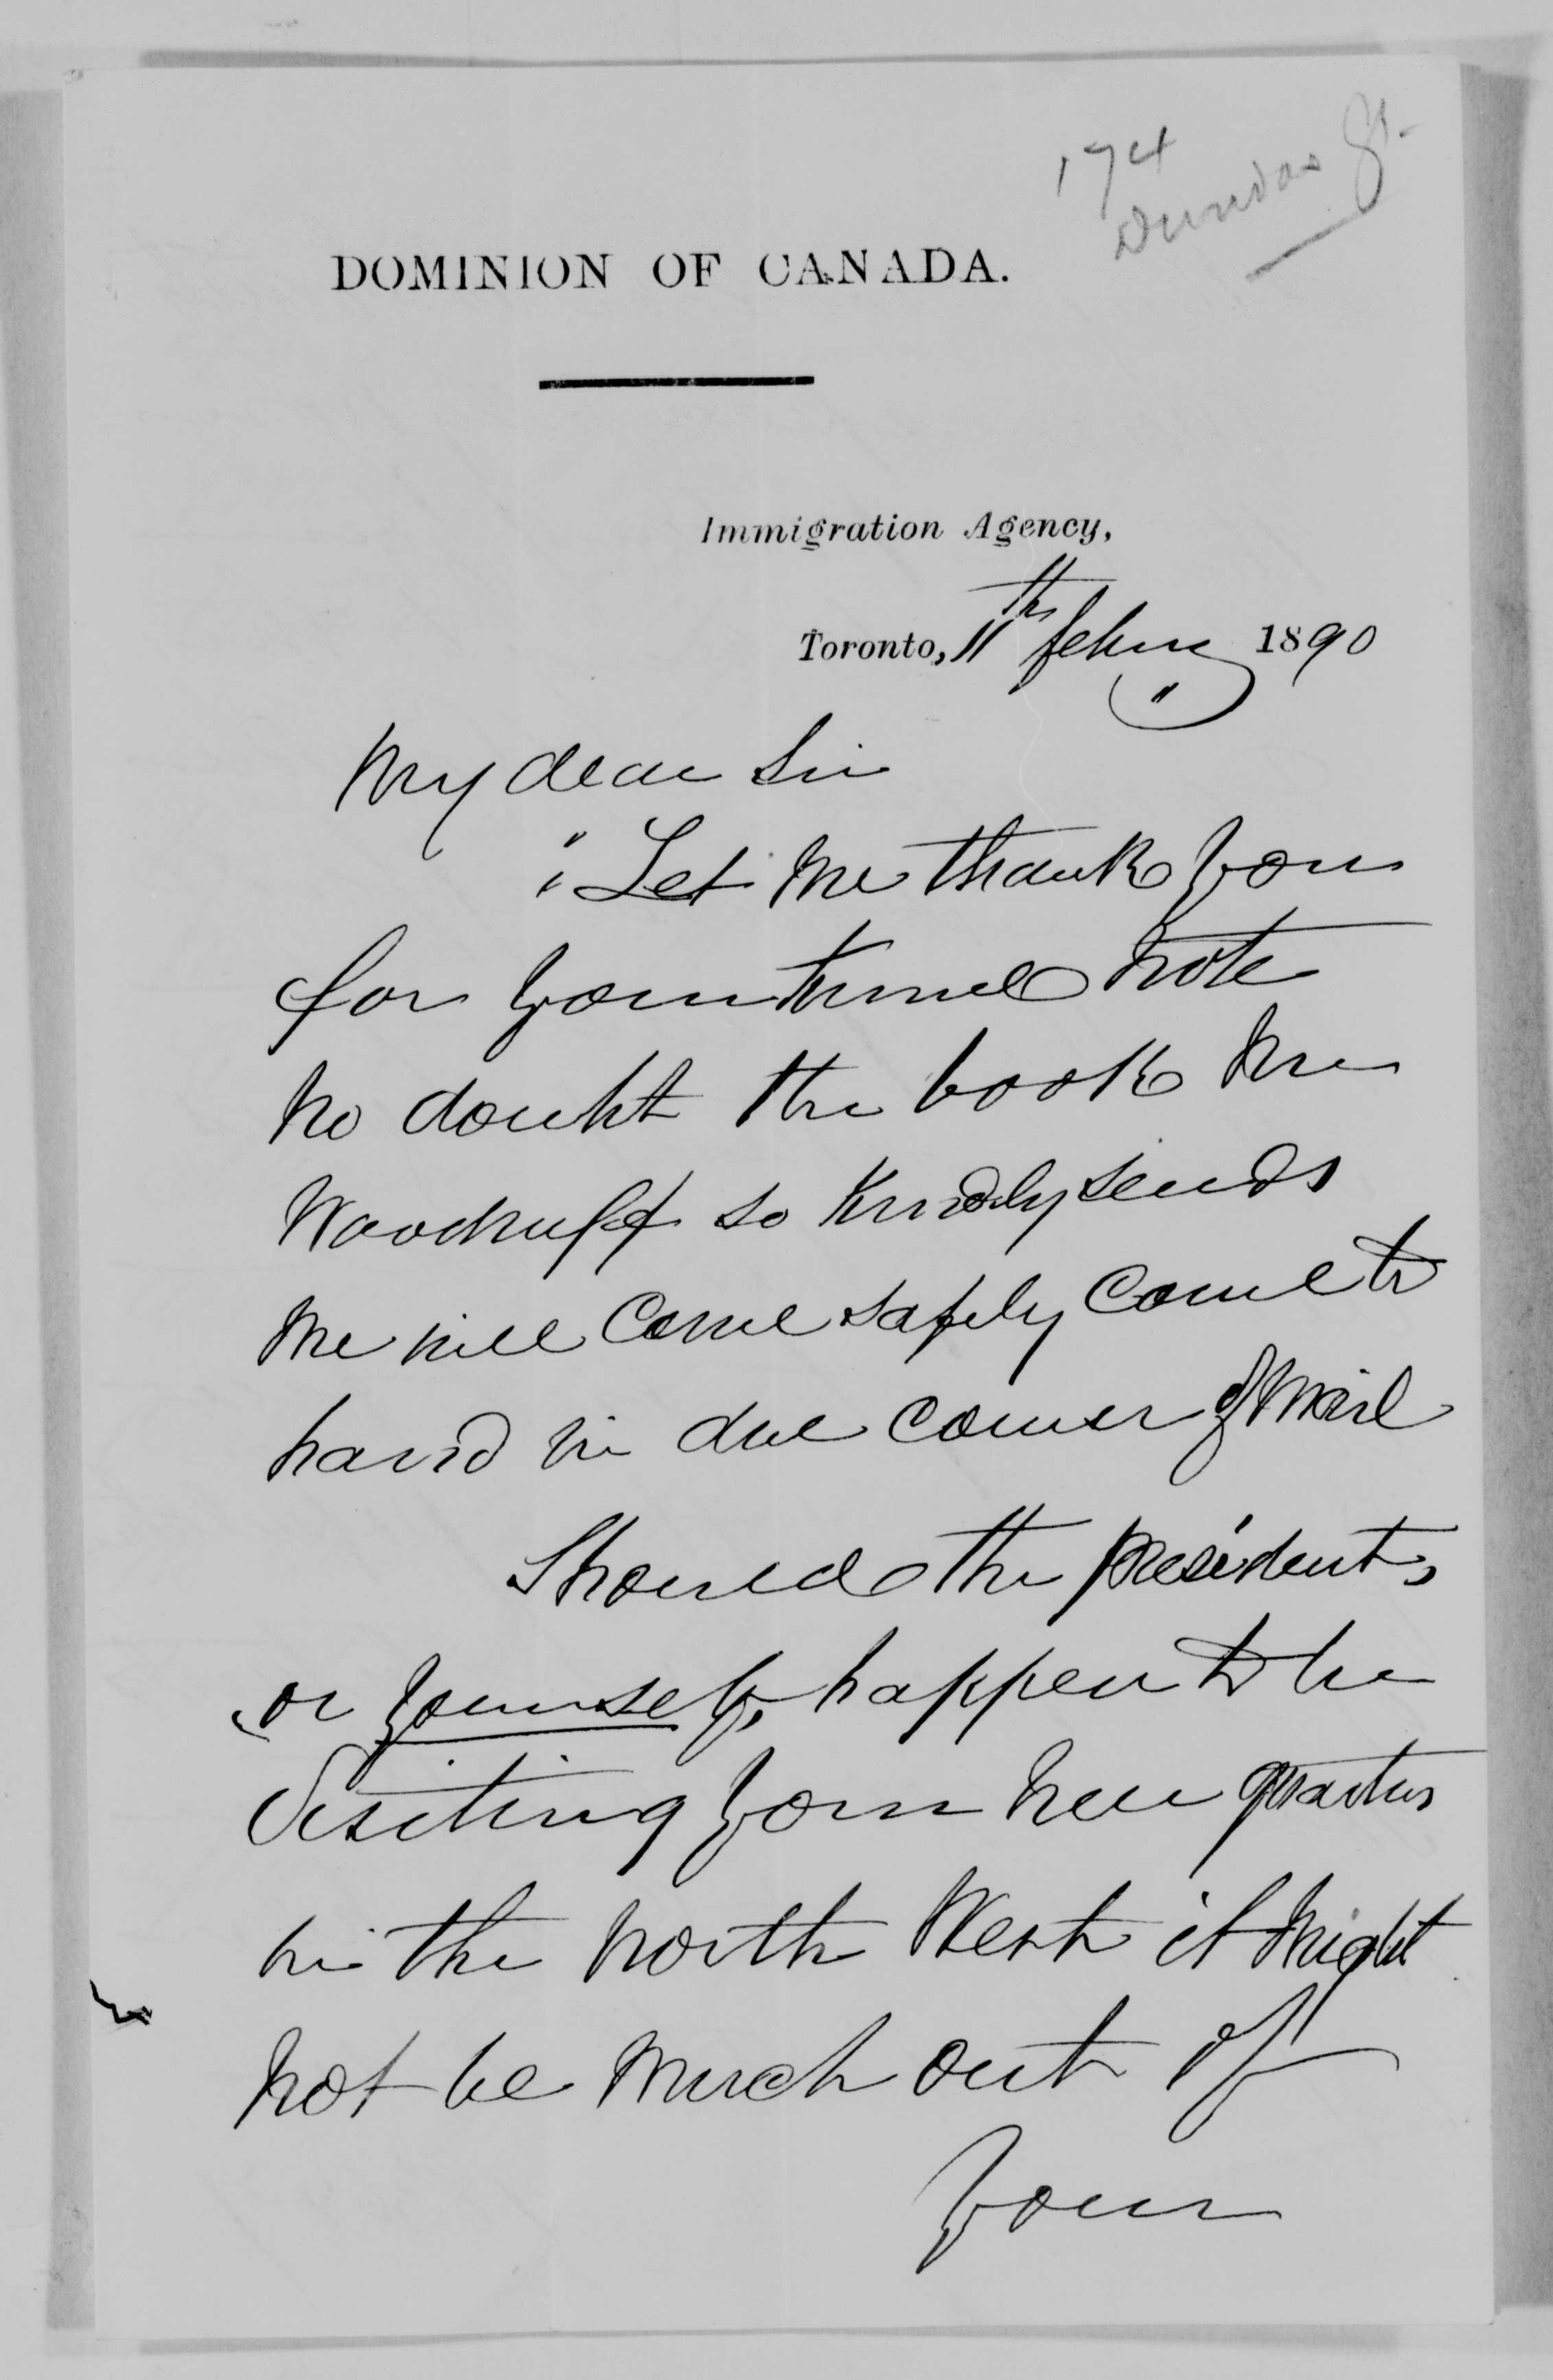 174
Dundas St.
DOMINION OF CANADA.
Immigration Agency,
Toronto, 11th Febru 1890
My dear Sir
Let me thank you
for your kind note
No doubt the book Mr
Woodruff so kindly sends
me will come safely come to
hand in due course of Mail
Should the president,
or yourself, happen to be
Visiting your new quarters
in the North West it might
not be much out of
your